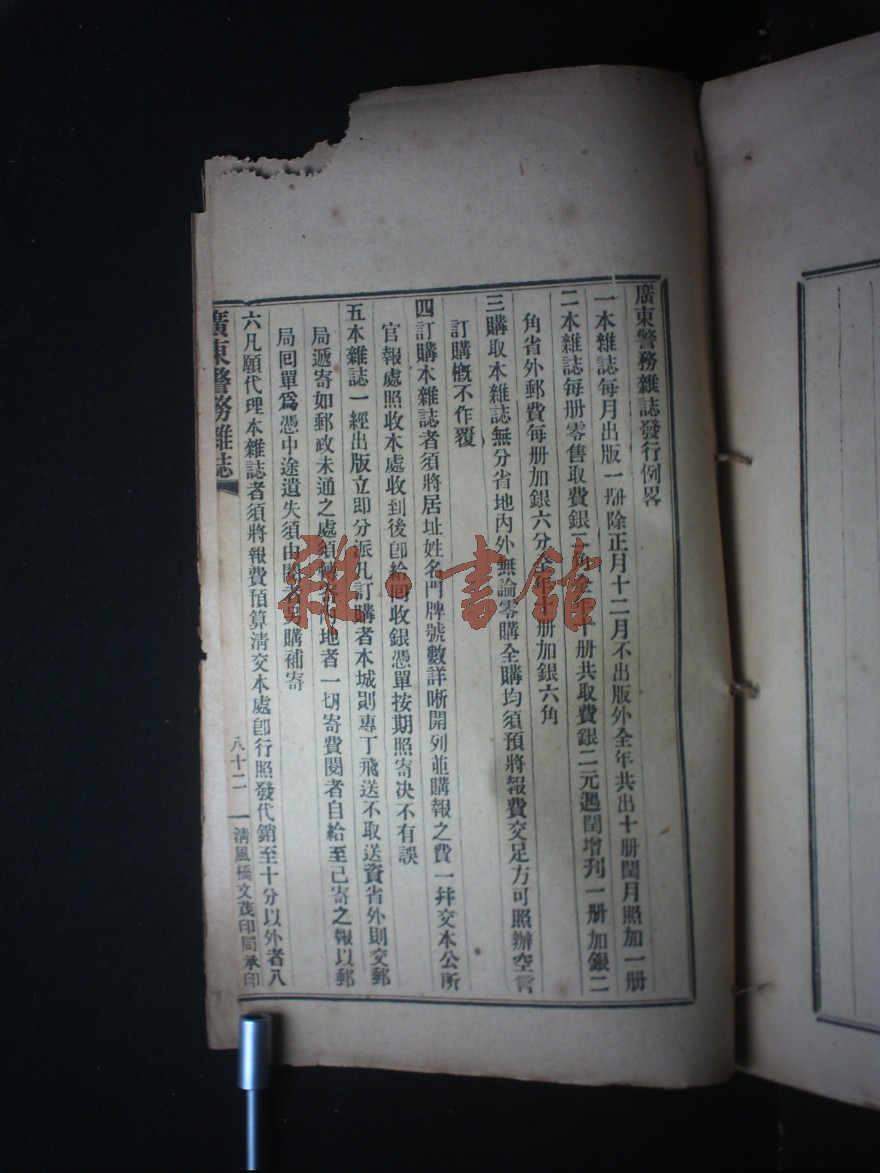 廣東警務雜誌發行例畧
一本雜誌每月出版一册除正月十二月不出版外全年共出十册閏月照加一册
二本雜誌每册零售取費銀二角全年十册共取費銀二元遇閏增刊一册加銀二
角省外郵費每册加銀六分全年十册加銀六角
三購取本雜誌無分省地內外無論零購全購均須預將報費交足方可照辦空言
訂購槪不作覆
四訂購本雜誌者須將居址姓名門牌號數詳晰開列並購報之費一幷交本公所
官報處照收本處收到後卽給回收銀憑單按期照寄决不有誤
五本雜誌一經出版立即分派凡訂購者本城則專丁飛送不取送資省外則交郵
局遞寄如郵政未通之處須轉寄內地者一切寄費閱者自給至已寄之報以郵
局回單爲憑中途遺失須由閱者另購補寄
六凡願代理本雜誌者須將報費預算清交本處卽行照發代銷至十分以外者八
廣東警務雜誌
八十二
清風橋文茂印局承印
雜·書館